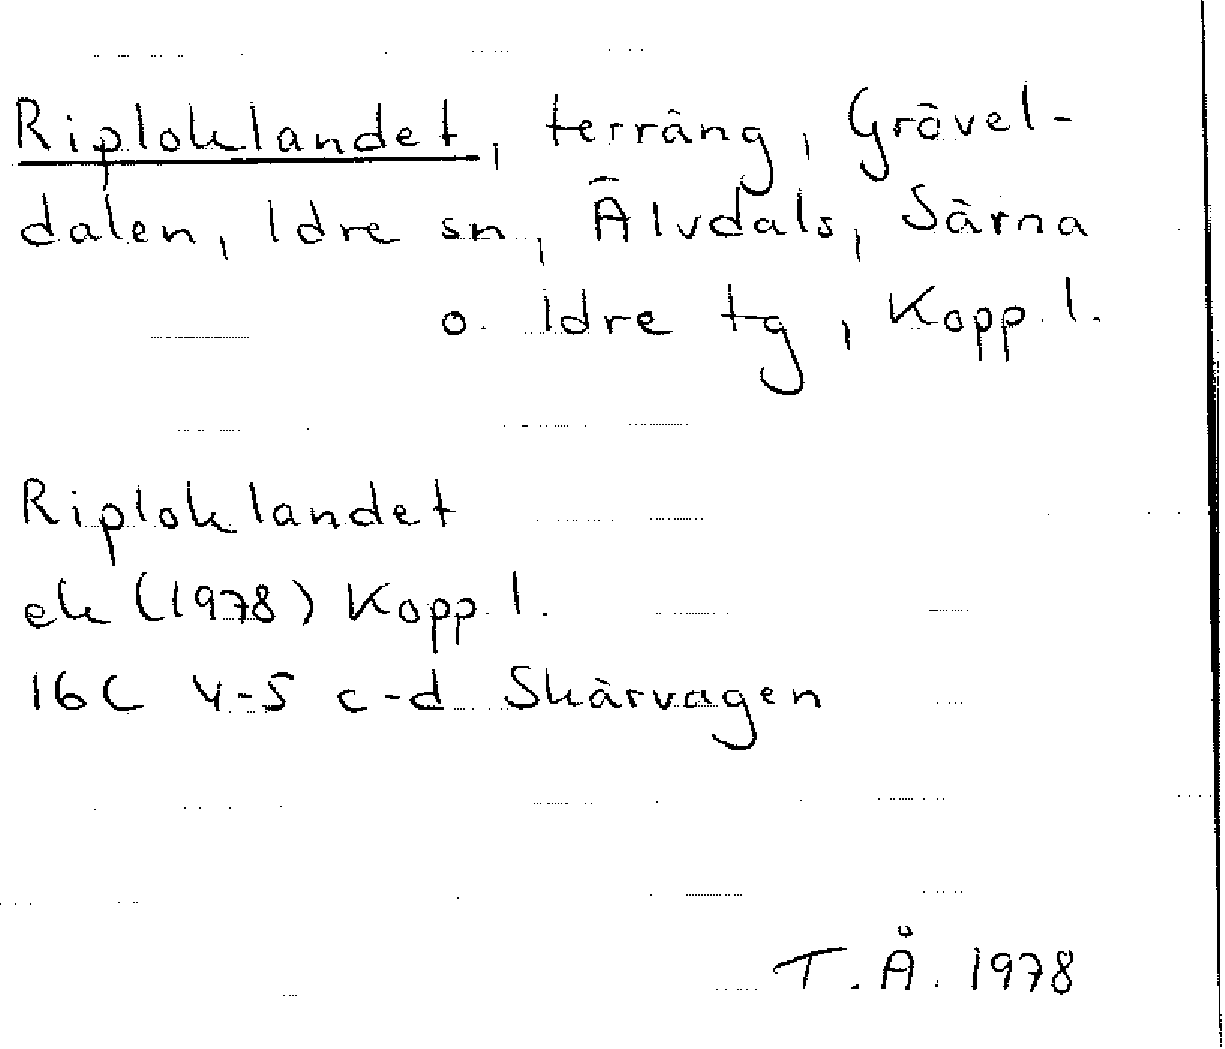 Riploklandet, terräng, Grövel-
dalen, Idre sn, Älvdals, Särna
o. Idre tg, Kopp. l.
Riploklandet
ek (1978) Kopp. l.
16C 4-5 c-d Skärvagen
T. Å. 1978